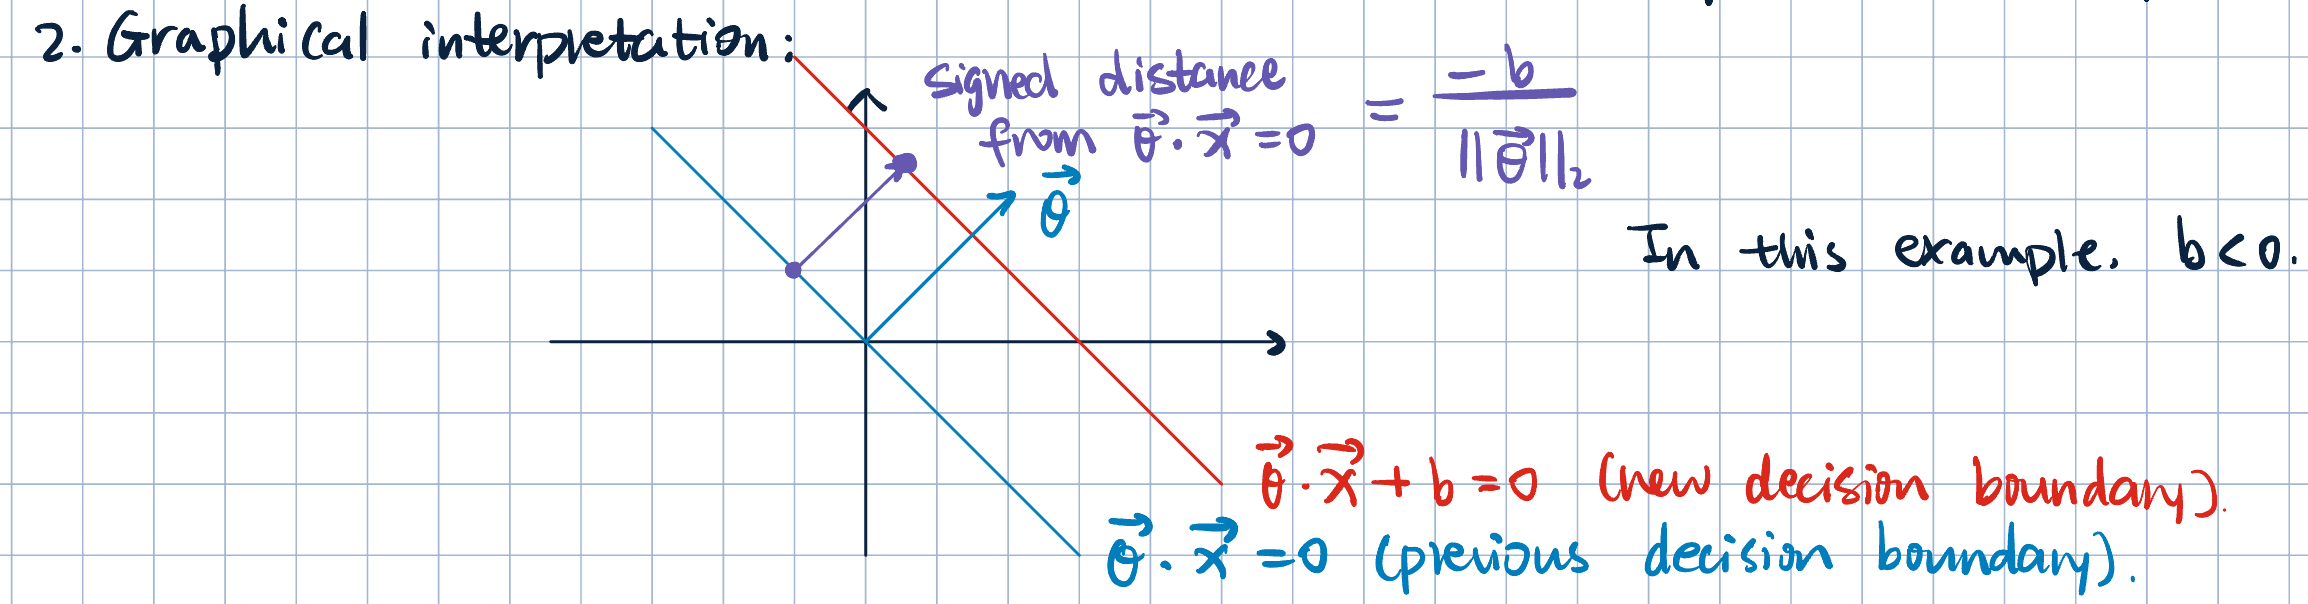 2. Graphical interpretation:
signed distance
from θ⃗ · x⃗ = 0 = −b / ||θ⃗||₂
θ⃗
In this example. b < 0.
θ⃗ · x⃗ + b = 0 (new decision boundary).
θ⃗ · x⃗ = 0 (previous decision boundary).